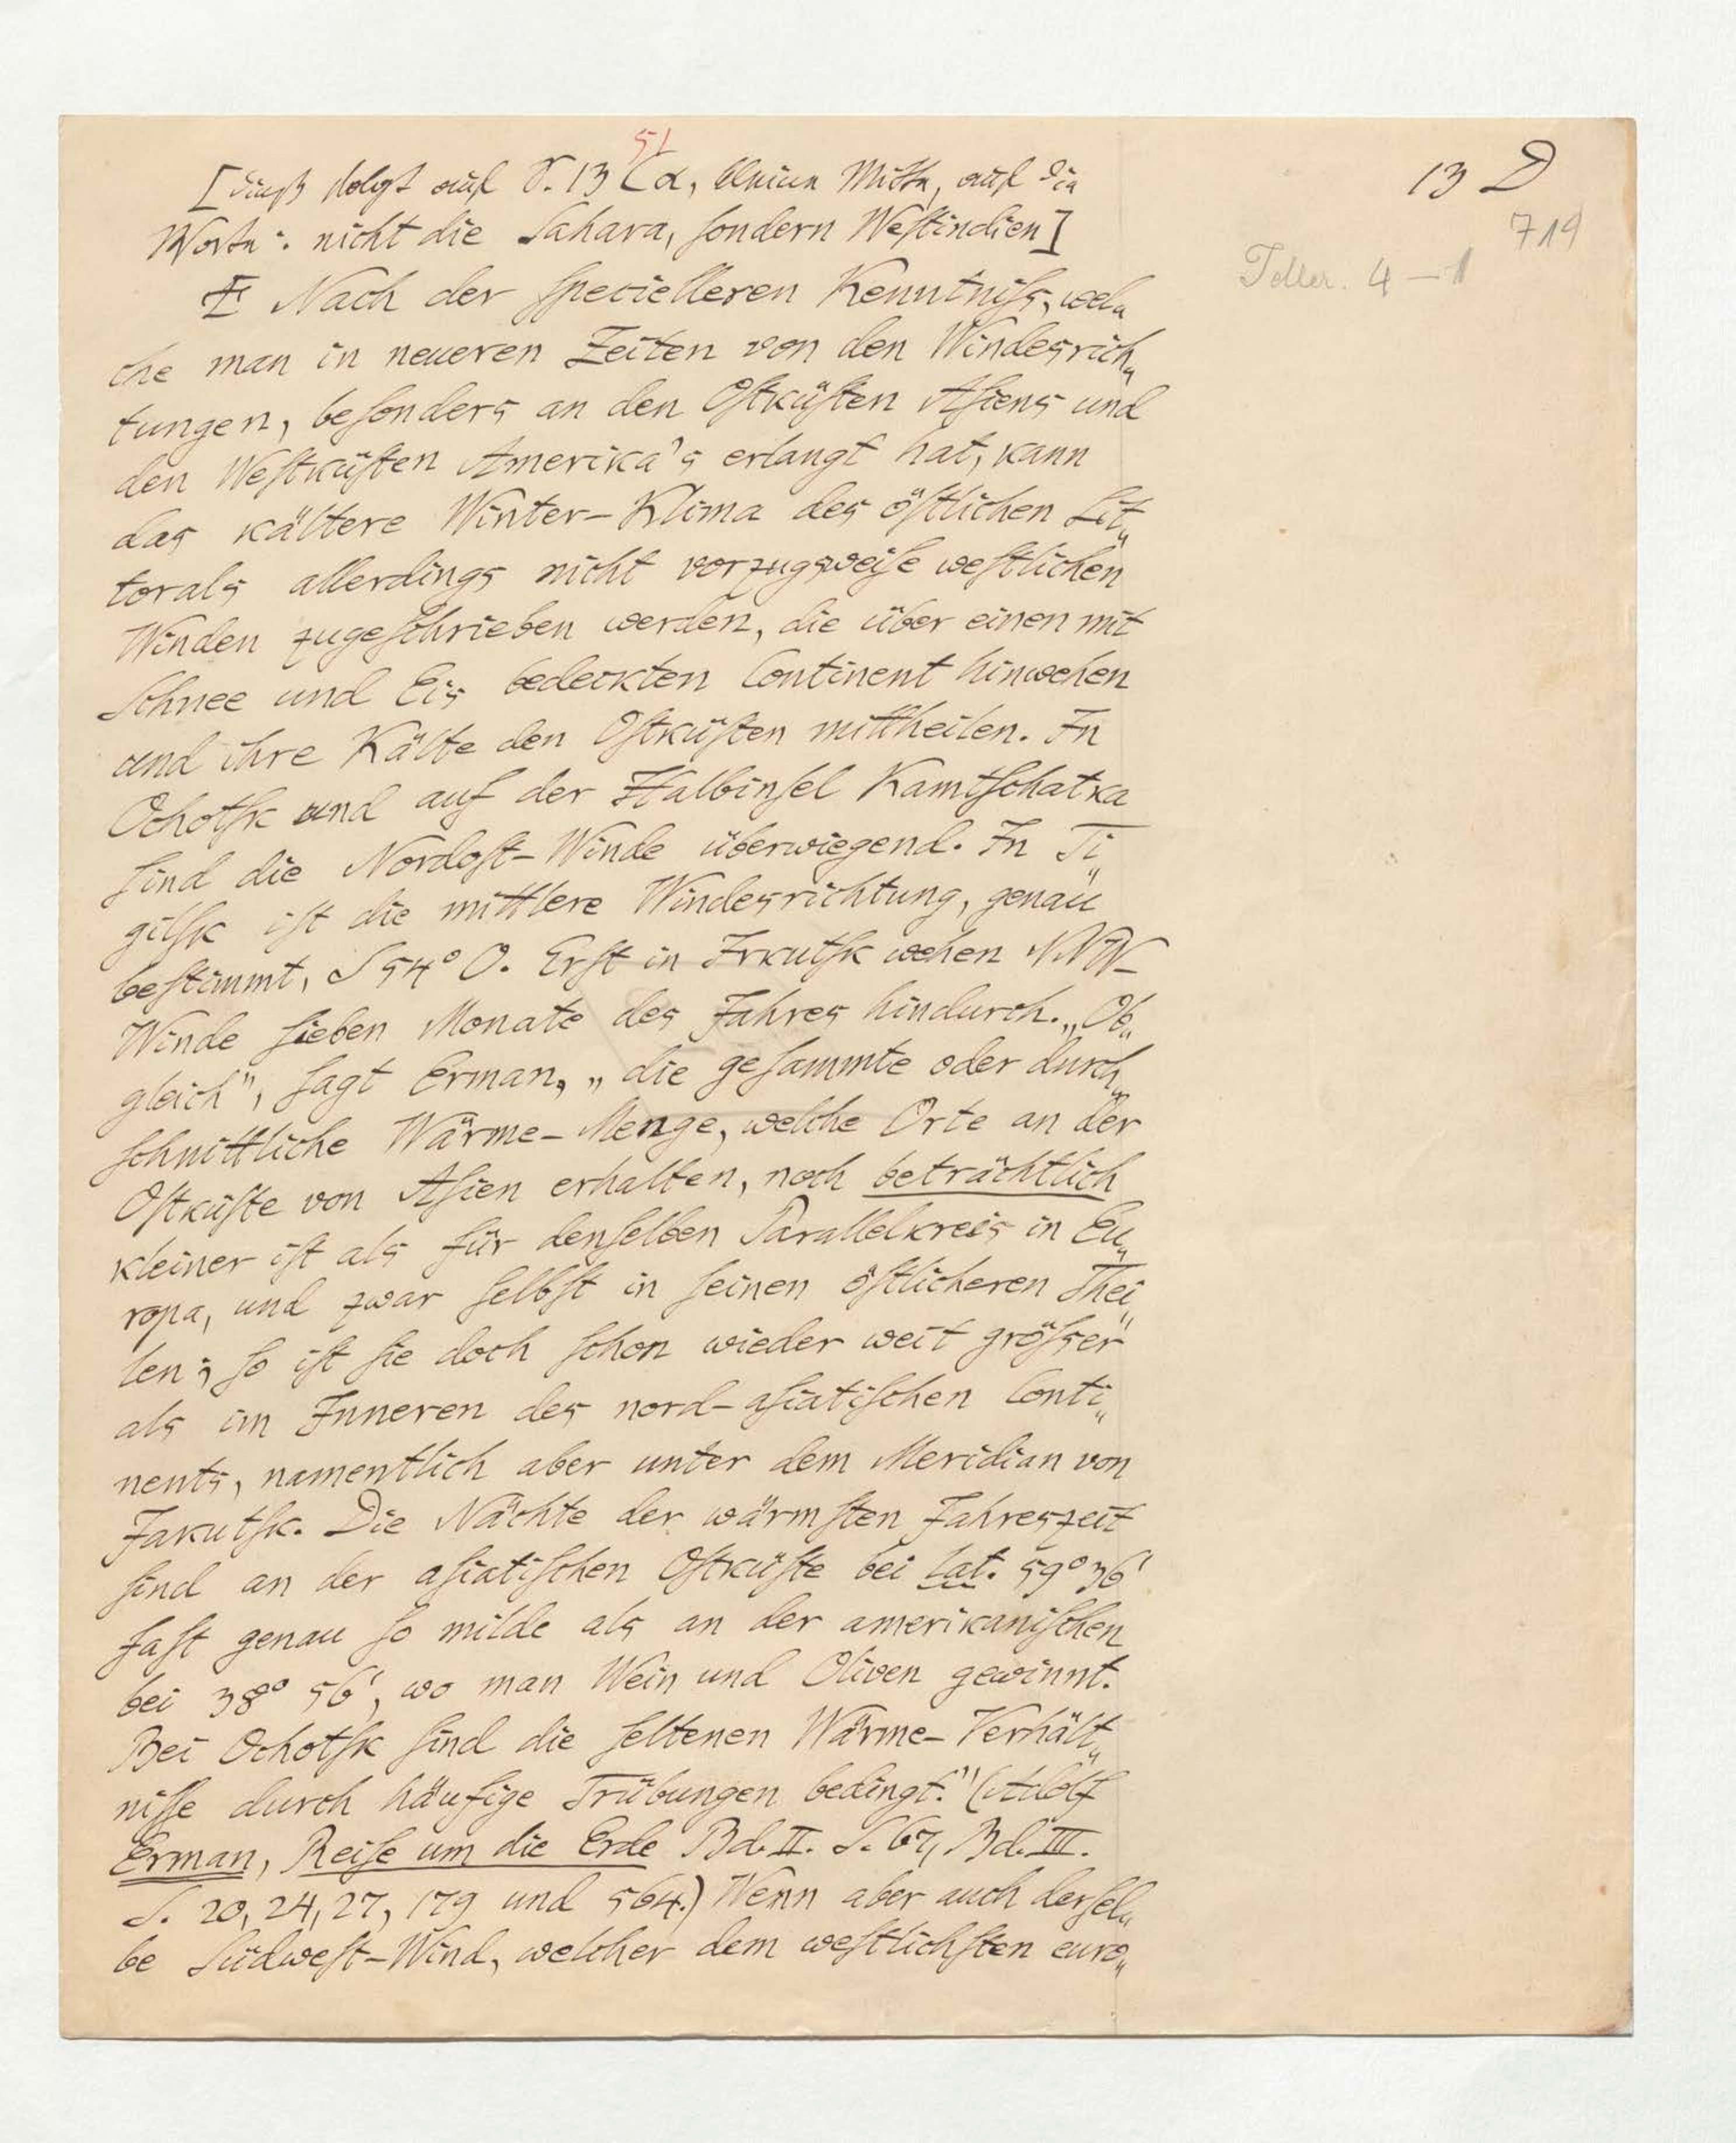 51
[dieß folgt auf S. 13 Cα, kleine Mitte, auf die
13 D
719
Worte: nicht die Sahara, ſondern Weſtindien]
Teller. 4 — 1
Nach der ſpecielleren Kenntniſs, wel„
che man in neueren Zeiten von den Windesrich„
tungen, beſonders an den Oſtküſten Aſiens und
den Weſtküſten Amerika's erlangt hat, kann
das kältere Winter-Klima des öſtlichen Lit„
torals allerdings nicht vorzugsweiſe weſtlichen
Winden zugeſchrieben werden, die über einen mit
Schnee und Eis bedeckten Continent hinwehen
und ihre Kälte den Oſtküſten mittheilen. In
Ochotſk und auf der Halbinſel Kamtſchatka
ſind die Nordoſt-Winde überwiegend. In Ti„
gilſk iſt die mittlere Windesrichtung, genau
beſtimmt, S 54° O. Erſt in Irkutſk wehen NNW-
Winde ſieben Monate des Jahres hindurch. „Ob„
gleich", ſagt Erman, „die geſammte oder durch„
ſchnittliche Wärme-Menge, welche Orte an der
Oſtküſte von Aſien erhalten, noch beträchtlich
kleiner iſt als für denſelben Parallelkreis in Eu„
ropa, und zwar ſelbſt in ſeinen öſtlicheren Thei„
len; ſo iſt ſie doch ſchon wieder weit gröſser
als im Inneren des nord-aſiatiſchen Conti„
nents, namentlich aber unter dem Meridian von
Jakutſk. Die Nächte der wärmſten Jahreszeit
ſind an der aſiatiſchen Oſtküſte bei lat. 59° 36'
faſt genau ſo milde als an der amerikaniſchen
bei 38° 56', wo man Wein und Oliven gewinnt.
Bei Ochotſk ſind die ſeltenen Wärme-Verhält„
niſſe durch häufige Trübungen bedingt." (Adolf
Erman, Reiſe um die Erde Bd. II. S. 67, Bd. III.
S. 20, 24, 27, 179 und 564.) Wenn aber auch derſel„
be Südweſt-Wind, welcher dem weſtlichſten euro„